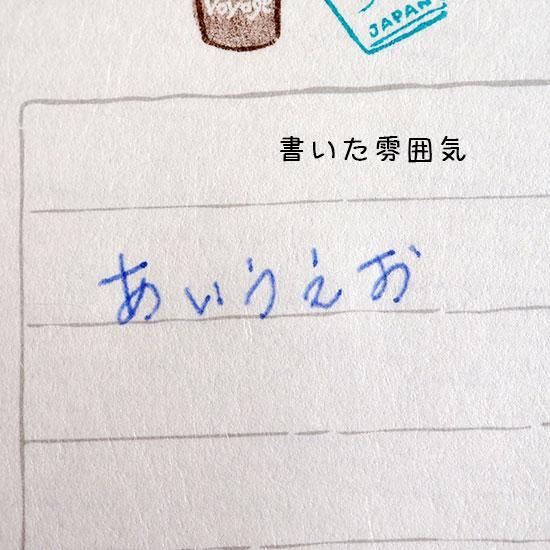 Voyage
JAPAN
書いた雰囲気
あいうえお